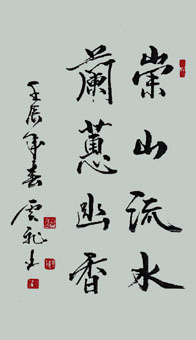 崇山流水
蘭蕙幽香
壬辰年春雲龍书